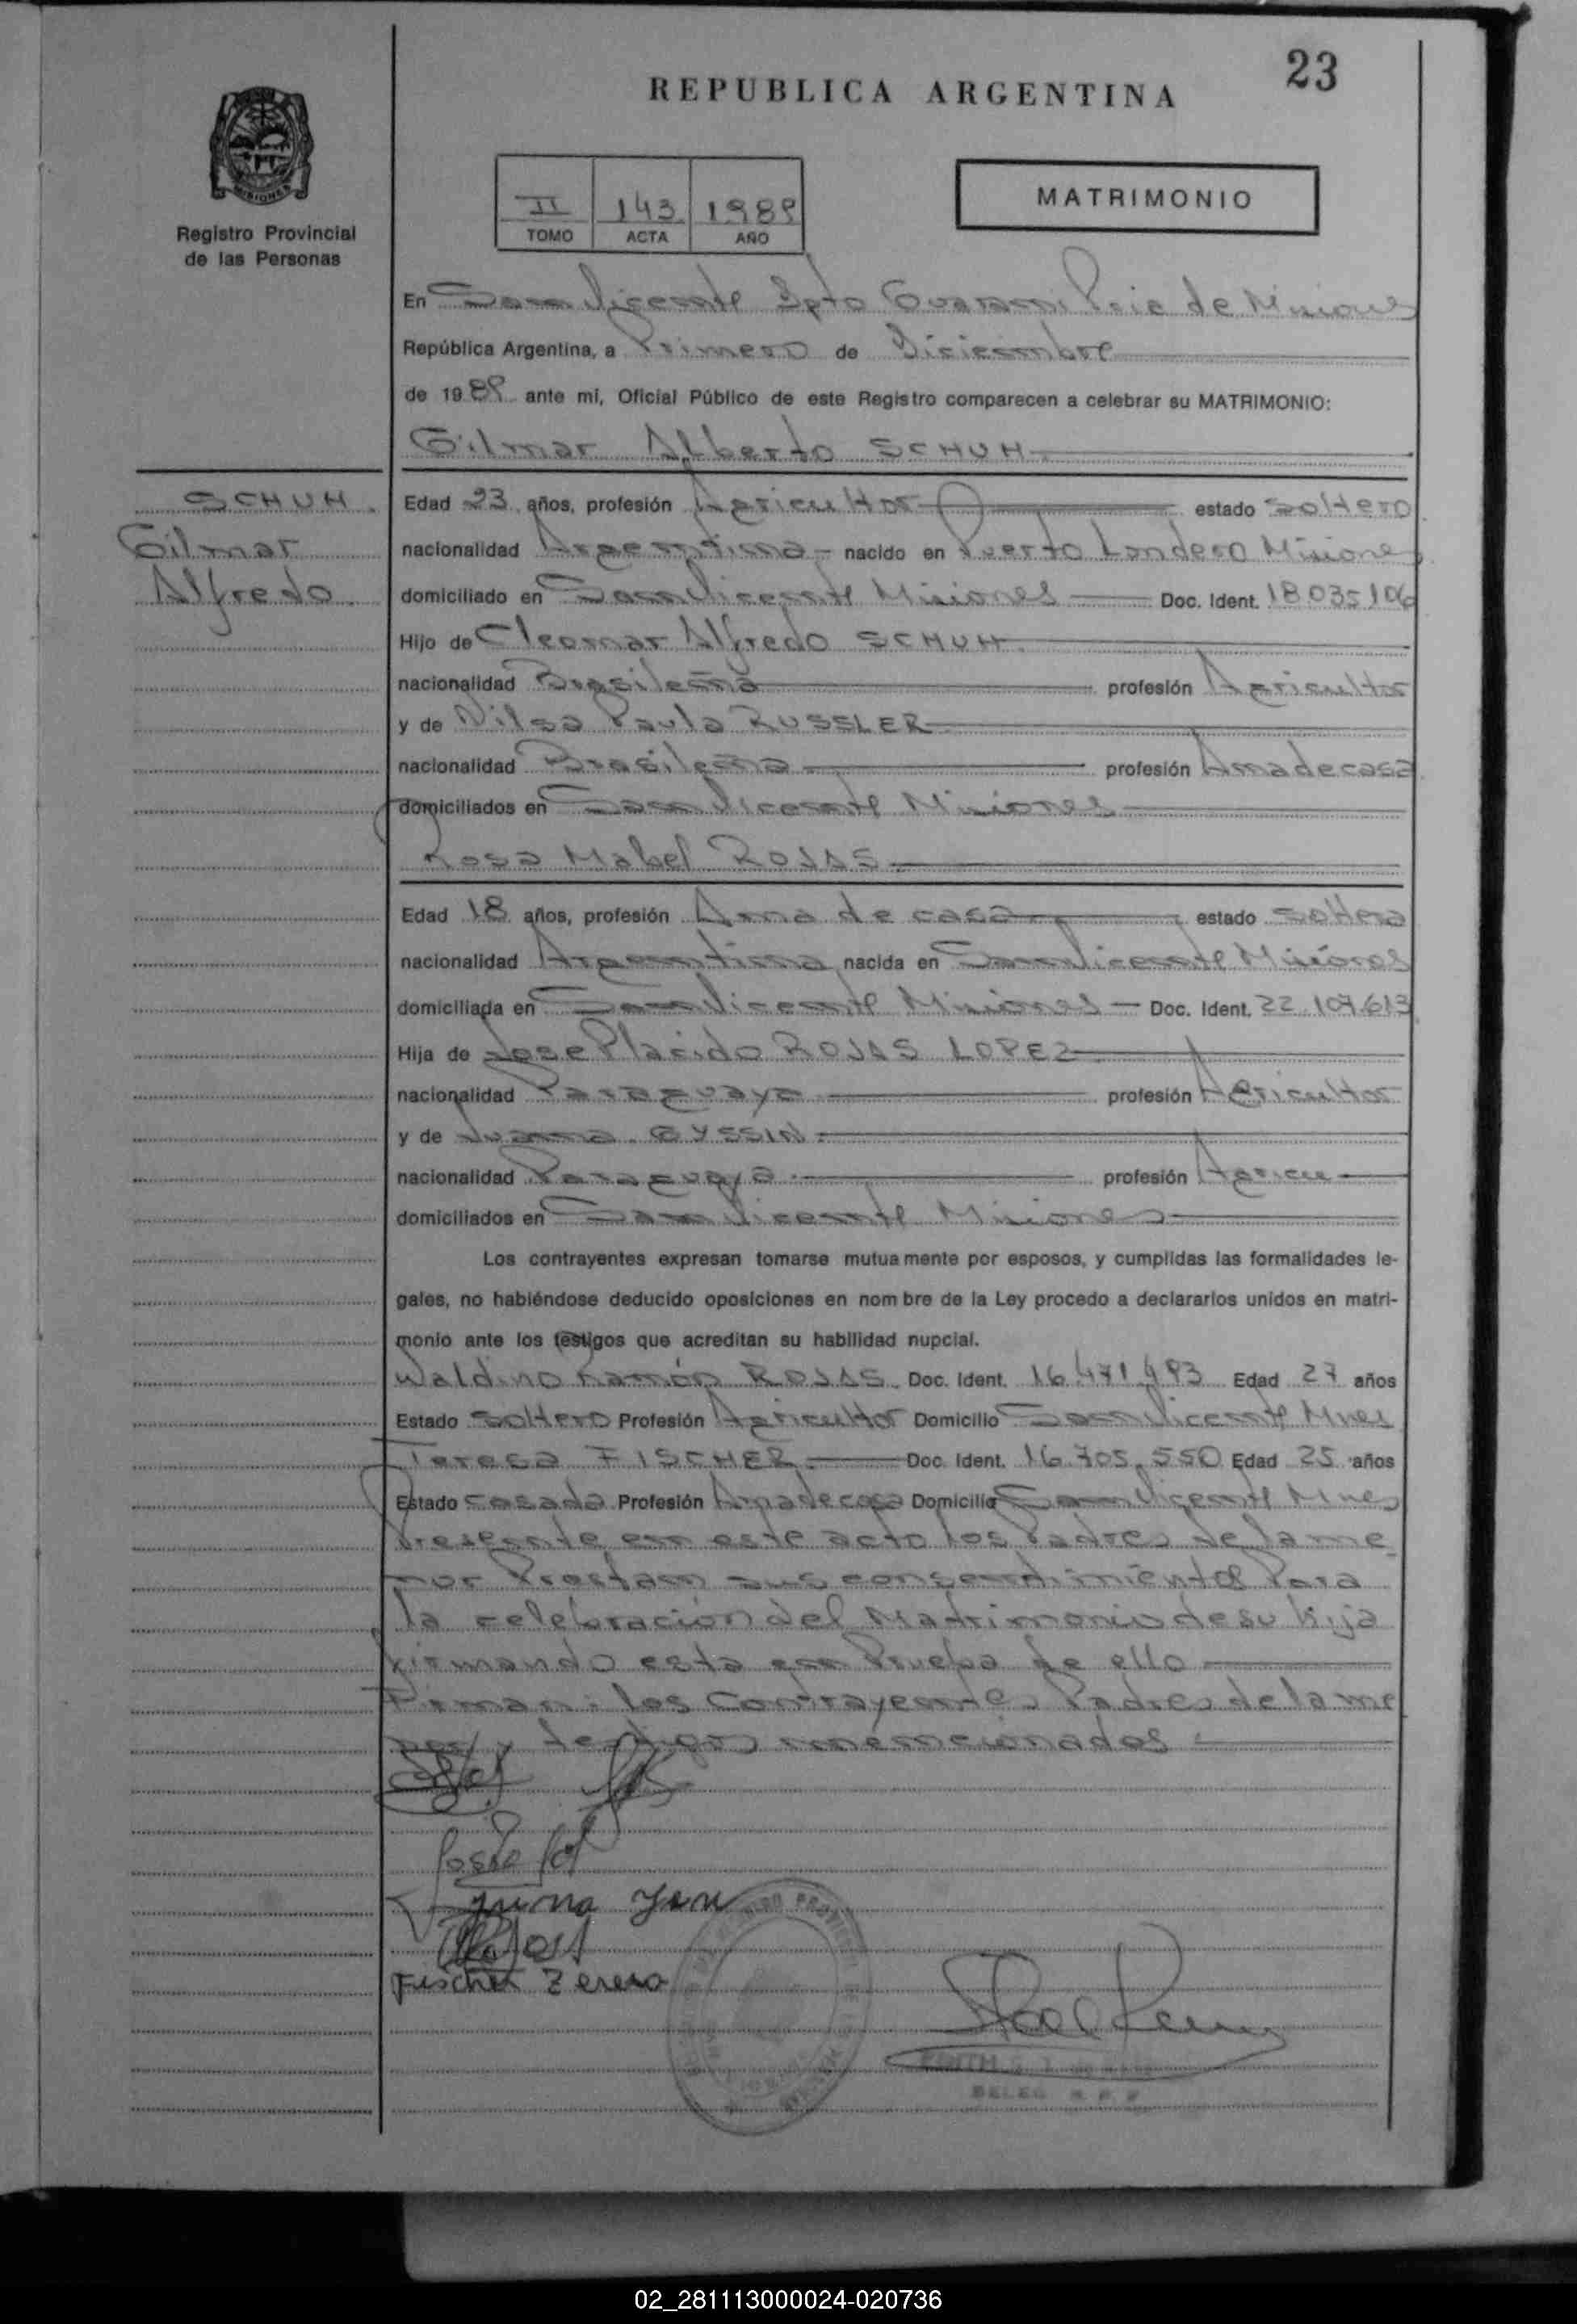 23
REPUBLICA ARGENTINA
MISIONES
Registro Provincial
de las Personas
II 143 1989
TOMO ACTA AÑO
MATRIMONIO
En San Vicente Dpto Guarani Pcia de Misiones
República Argentina, a Primero de Diciembre
de 1989 ante mí, Oficial Público de este Registro comparecen a celebrar su MATRIMONIO:
Gilmar Alberto SCHUH
SCHUH.
Gilmar
Alfredo.
Edad 23 años, profesión Agricultor estado soltero
nacionalidad Argentina nacido en Puerto Londero Misiones
domiciliado en San Vicente Misiones Doc. Ident. 18.035.106
Hijo de Cleomar Alfredo SCHUH
nacionalidad Brasileña profesión Agricultor
y de Nilsa Paula RUSSLER
nacionalidad Brasileña profesión Ama de casa
domiciliados en San Vicente Misiones
Rosa Mabel ROJAS
Edad 18 años, profesión Ama de casa estado soltera
nacionalidad Argentina nacida en San Vicente Misiones
domiciliada en San Vicente Misiones Doc. Ident. 22.107.613
Hija de Jose Placido ROJAS LOPEZ
nacionalidad Paraguaya profesión Agricultor
y de Juana GYSSIN
nacionalidad Paraguaya profesión Agricu
domiciliados en San Vicente Misiones
Los contrayentes expresan tomarse mutuamente por esposos, y cumplidas las formalidades le-
gales, no habiéndose deducido oposiciones en nombre de la Ley procedo a declararlos unidos en matri-
monio ante los testigos que acreditan su habilidad nupcial.
Waldino Ramón ROJAS Doc. Ident. 16.471.493 Edad 27 años
Estado soltero Profesión Agricultor Domicilio San Vicente Mnes
Teresa FISCHER Doc. Ident. 16.705.550 Edad 25 años
Estado casada Profesión Ama de casa Domicilio San Vicente Mnes
Presente en este acto los Padres de la me
nor Prestan sus consentimientos Para
la celebración del Matrimonio de su hija
firmando esta en Prueba de ello
Firman: los Contrayentes Padres de la me
nor y testigos
Fischer Teresa
02_281113000024-020736